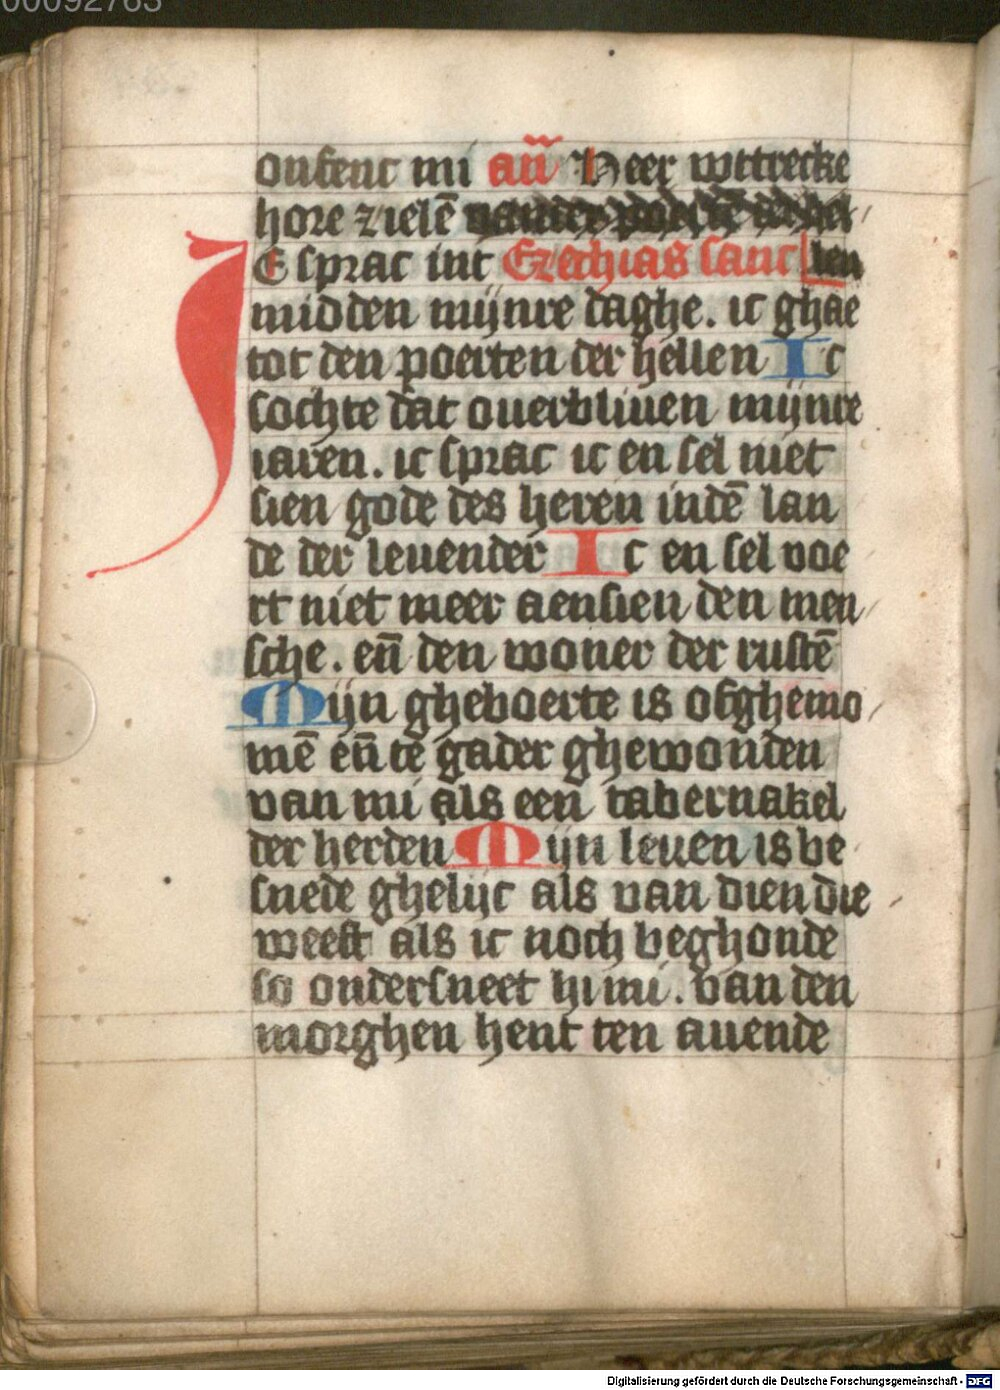 00092763
onfenc mi an̄ Heer wttrecke
hore zielē vander poertē der hel
IC sprac int Ezechias sanc len
midden mijnre daghe. ic ghae
tot den poerten der hellen Ic
sochte dat ouerbliuen mijnre
iaren. ic sprac ic en sel niet
sien gode des heren indē lan
de der leuender Ic en sel voe
rt niet meer aensien den men
sche. en̄ den woner der rustē
Mijn gheboerte is ofghemo
mē en̄ te gader ghewonden
van mi als een tabernakel
der herden Mijn leuen is be
snede ghelijc als van dien die
weeft als ic noch beghonde
so ondersneet hi mi. van den
morghen hent ten auende
Digitalisierung gefördert durch die Deutsche Forschungsgemeinschaft - DFG